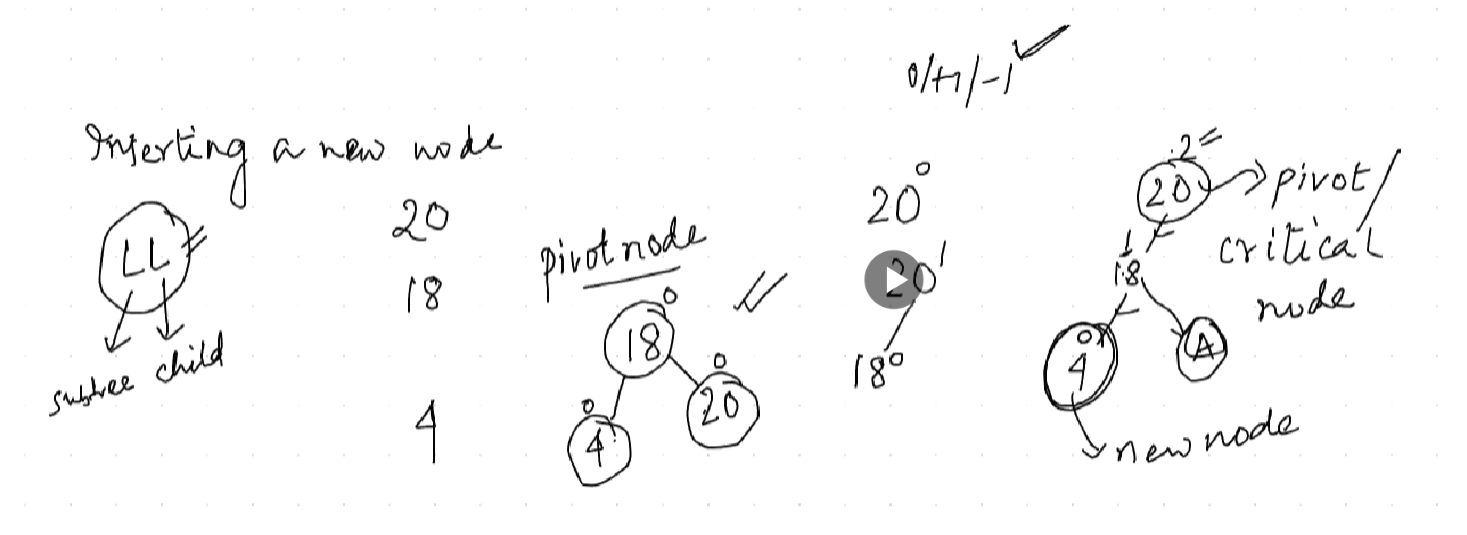 0/+1/-1
Inserting a new node
LL
subtree child
20
18
4
pivot node
18 0
4 0
20 0
20 0
20 1
18 0
20 2
pivot/
critical
node
18 1
4 0
A
new node